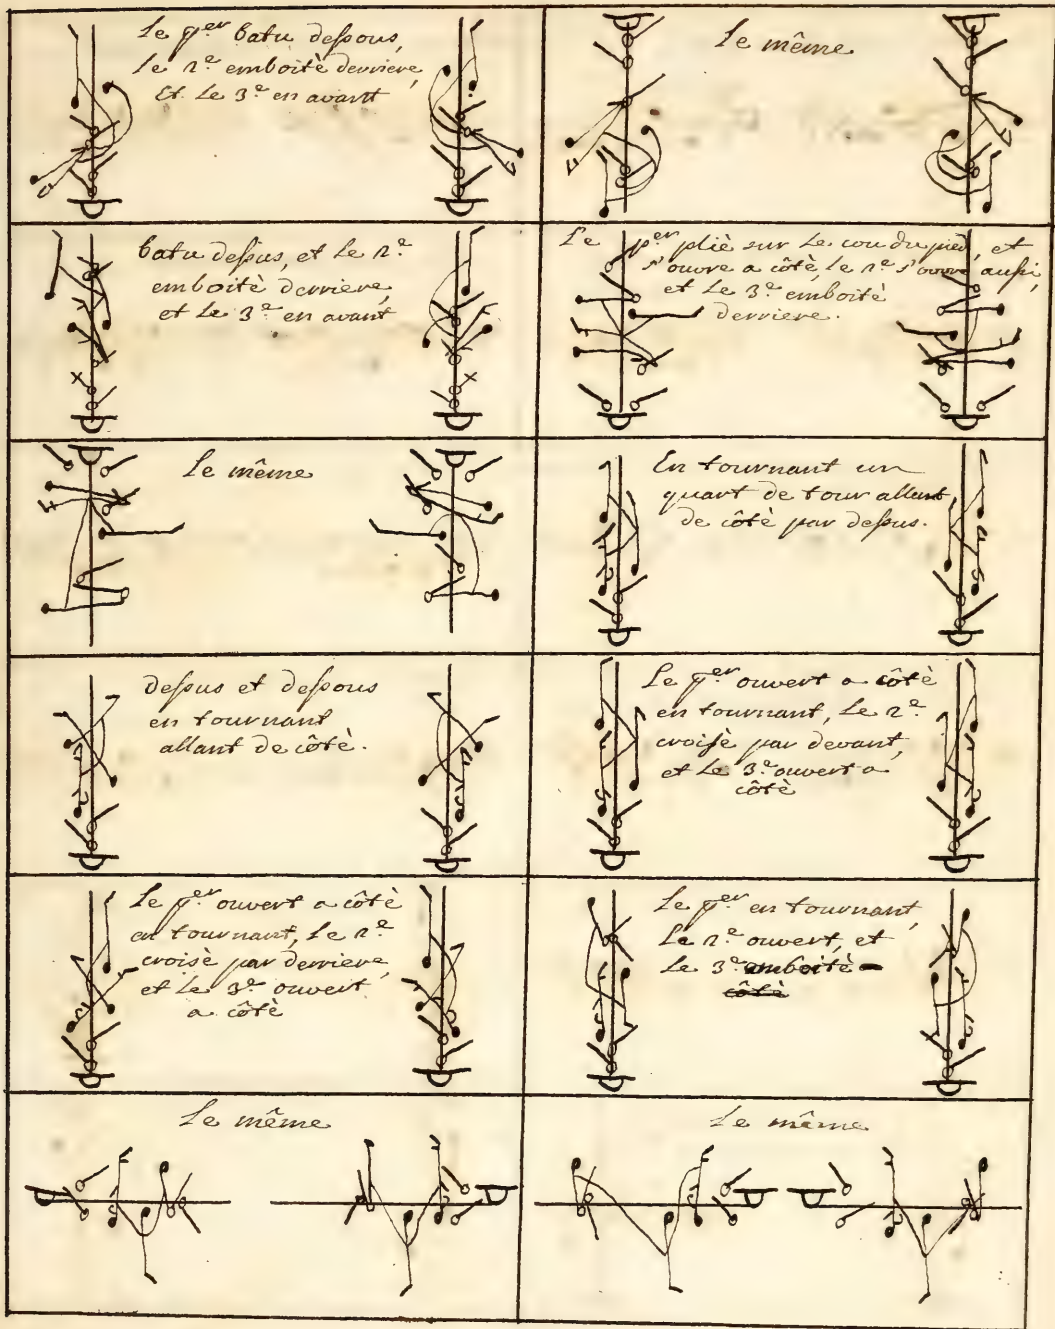 Le p.er batu dessous,
le 2.e emboitè derriere,
Et. Le 3.e en avant
le même
batu dessus, et Le 2.e
emboitè derriere,
et Le 3.e en avant
Le p.er pliè sur Le cou du pied, et
s'ouvre a côtè, le 2.e s'ouvre aussi,
et Le 3.e emboitè
derriere.
Le même
En tournant un
quart de tour allant
de côtè par dessus.
Dessus et dessous
en tournant
allant de côtè.
Le p.er ouvert a côtè
en tournant, Le 2.e
croisè par devant,
et Le 3.e ouvert a
côtè
Le p.er ouvert a côtè
en tournant, Le 2.e
croisè par derriere,
et Le 3.e ouvert
a côtè
Le p.er en tournant,
Le 2.e ouvert, et
Le 3.e emboitè
côtè
Le même
Le même